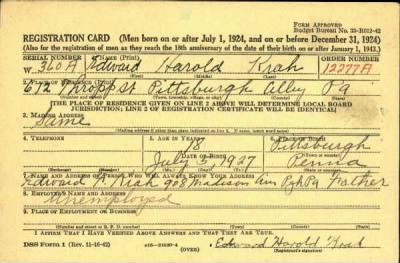 FORM APPROVED
Budget Bureau No. 33-R012-42
REGISTRATION CARD (Men born on or after July 1, 1924, and on or before December 31, 1924)
(Also for the registration of men as they reach the 18th anniversary of the date of their birth on or after January 1, 1943.)
SERIAL NUMBER ORDER NUMBER
W 360 A Edward Harold Krah 12277A
(First) (Middle) (Last)
2. PLACE OF RESIDENCE (Print)
612 Thropp St Pittsburgh Alleg Pa
[THE PLACE OF RESIDENCE GIVEN ON LINE 2 ABOVE WILL DETERMINE LOCAL BOARD
JURISDICTION; LINE 2 OF REGISTRATION CERTIFICATE WILL BE IDENTICAL]
3. MAILING ADDRESS
Same
4. TELEPHONE 5. AGE IN YEARS 6. PLACE OF BIRTH
18 Pittsburgh
DATE OF BIRTH
July 5 1927 Penna
7. NAME AND ADDRESS OF PERSON WHO WILL ALWAYS KNOW YOUR ADDRESS
Edward Krah 908 Madison Ave Pgh Pa Father
8. EMPLOYER'S NAME AND ADDRESS
Unemployed
9. PLACE OF EMPLOYMENT OR BUSINESS
I AFFIRM THAT I HAVE VERIFIED ABOVE ANSWERS AND THAT THEY ARE TRUE.
DSS Form 1 (Rev. 11-16-42) (OVER) Edward Harold Krah